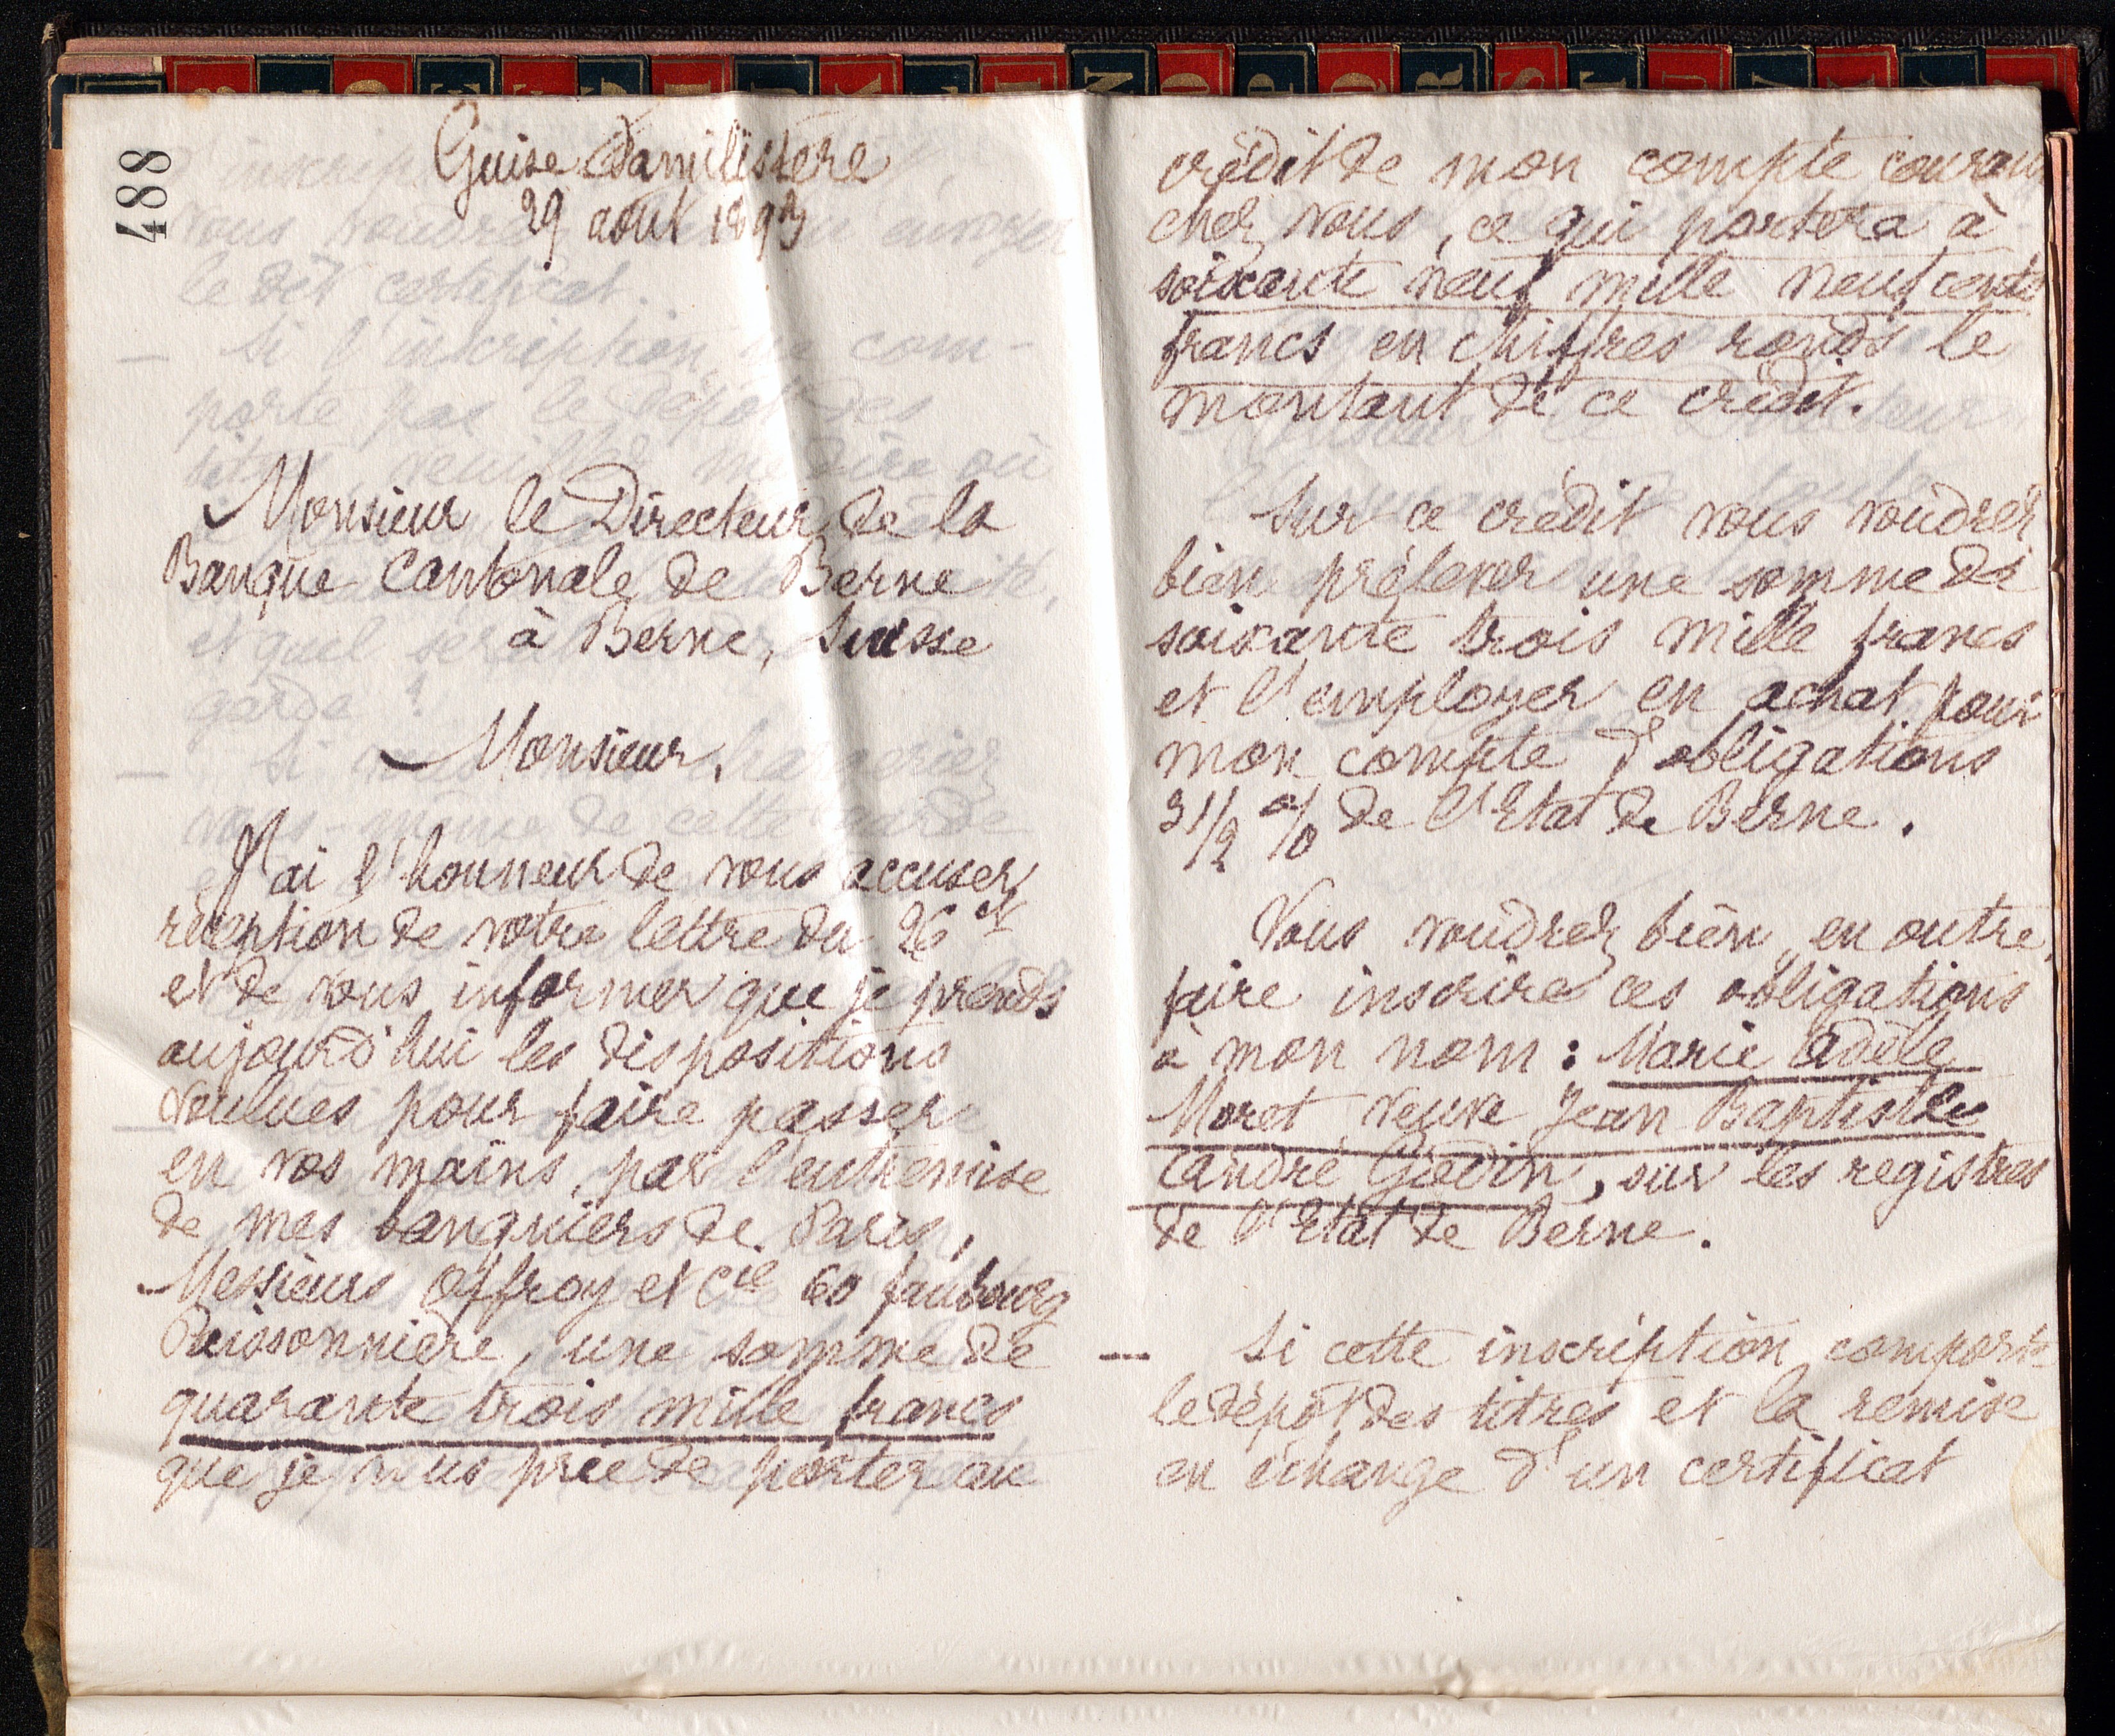 488
Guise Familistère
29 août 1893
Monsieur le Directeur de la
Banque Cantonale de Berne
à Berne, Suisse
Monsieur,
J'ai l'honneur de vous accuser
réception de votre lettre du 26 ct
et de vous informer que je prends
aujourd'hui les dispositions
voulues pour faire passer
en vos mains, par l'entremise
de mes banquiers de Paris,
Messieurs Offroy et Cie 60 faubourg
Poissonnière, une somme de
quarante trois mille francs
que je vous prie de porter au
crédit de mon compte courant
chez vous, ce qui portera à
soixante neuf mille neuf cents
francs en chiffres ronds le
montant de ce crédit.
Sur ce crédit vous voudrez
bien prélever une somme de
soixante trois mille francs
et l'employer en achat pour
mon compte d'obligations
3 1/2 % de l'Etat de Berne.
Vous voudrez bien, en outre,
faire inscrire ces obligations
à mon nom : Marie Adèle
Moret veuve Jean Baptiste
André Godin, sur les registres
de l'Etat de Berne.
— Si cette inscription comporte
le dépôt des titres et la remise
en échange d'un certificat